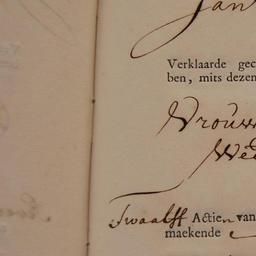 Jan
Verklaarde gec
ben, mits dezen
Vrouw
Wed
Twaalff Actien van
maekende